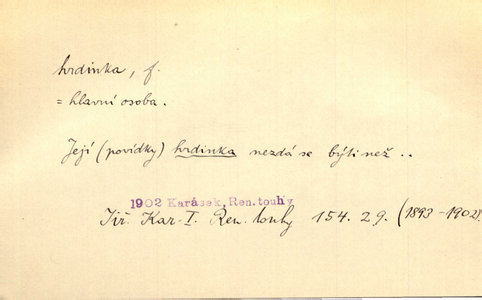 hrdinka, f.
= hlavní osoba.
Její (povídky) hrdinka nezdá se býti než ..
1902 Karásek, Ren. touhy
Jiř. Kar. I. Ren. touhy 154. 29. (1893-1902)